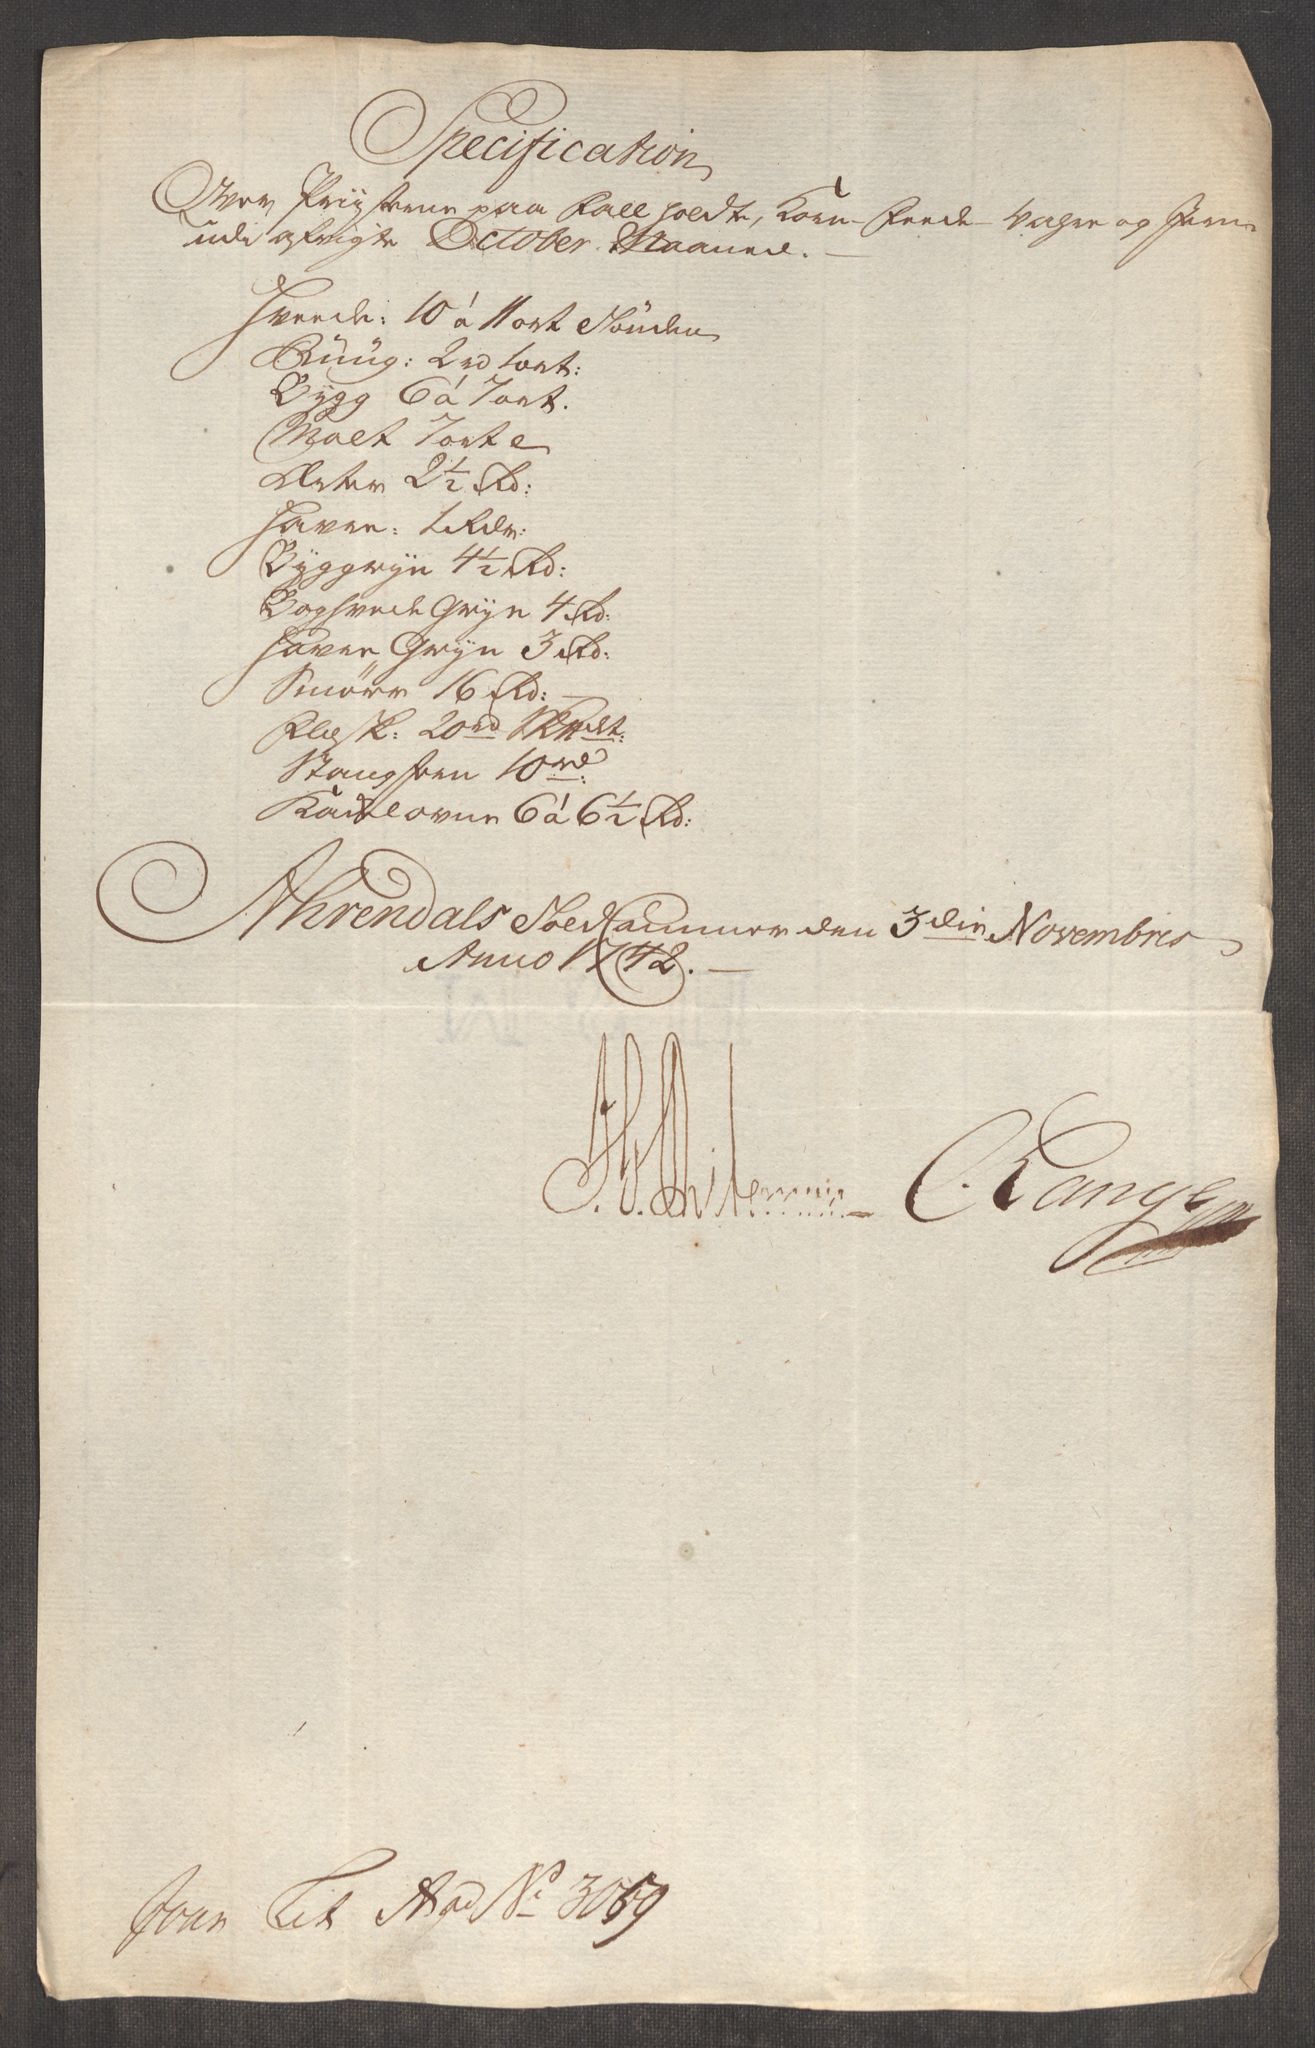 Specification
Over Priiserne paa Kornvahre og Jern
udi afvigte October Maaned.
Hveede: 10 á 11 ort Tønden
Rüüg: 2 rd 1 ort:
Bÿgg 6 á 7 ort.
Malt 7 ort
Erter 2½ Rd:
Havre: 1 Rdr:
Bÿggrÿn 4½ Rd:
Boghvede Grÿn 4 Rd:
Havre Grÿn 3 Rd:
Smörr 16 Rd:
Flesk: 20 rd Skpdt:
Stangjern 10 rd:
Kackelovne 6 á 6½ Rd:
Ahrendals Toldkammer den 3die Novembris
Anno 1742.
C. Range
No 3069